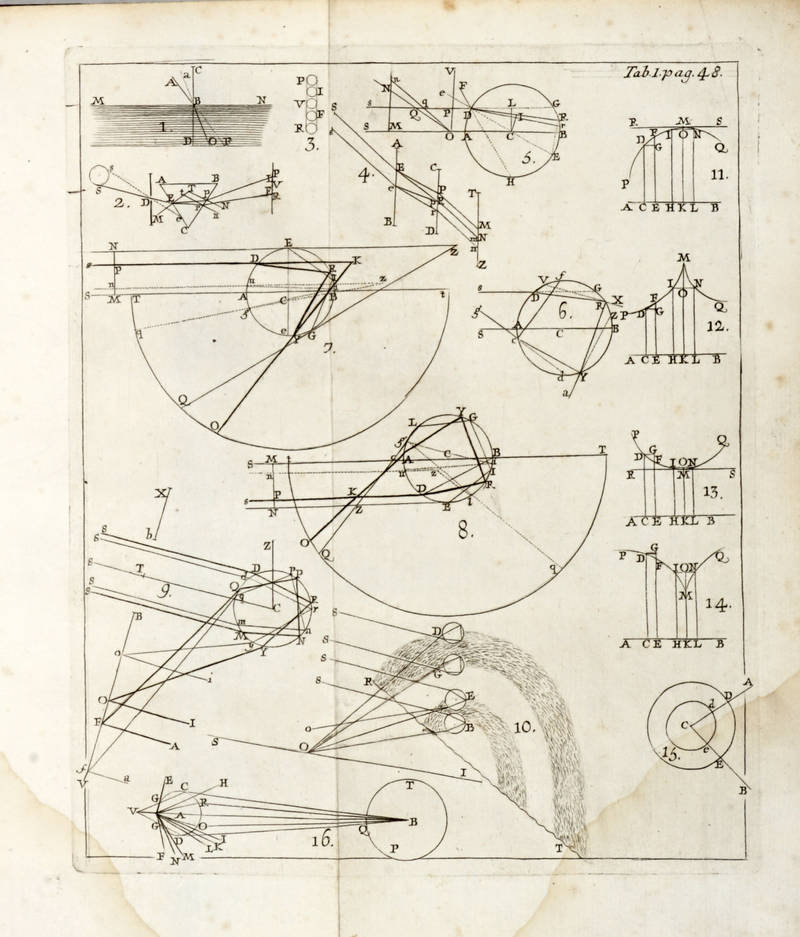 Tab. I. pag. 48.
C
A a
M B N
1.
D O P
P
I
V
F
R
3.
V
n e F L G
N
s q P D I R
Q r
S M O A C B
5.
E
H
R M S
D F I O N
G Q
P
11.
A C E H K L B
S
s
4.
A
E C
e P
T
B D M
m N
n
Z
s
S A B P
2. D E t T P V
F
R
M e r N
n
C
N E
s P D R K Z
n z
S M T A C B t
q
e Y G
7.
Q
O
V f G
s D R X
6.
S A C B Z
c
d Y
a
M
I N
F O
P D G Q
12.
A C E H K L B
Y
L G
S M A C B T
n
s P K D R I
N Z E
8.
O
Q q
P Q
D G F I O N
R M S
13.
A C E H K L B
G
P D F I O N Q
M
14.
A C E H K L B
X
b
S
s
S T
9.
Z
D P p
d
O
q C R
r
m
M N n
Y
B
o
i
O I
F A
f
V a
S D
S
S G
R
S E
o B
10.
S O
I
T
A
D
d
C
15. e
E
B
E H
G C
R
V A
G O
D I
L K
F N M
16.
T
Q B
P